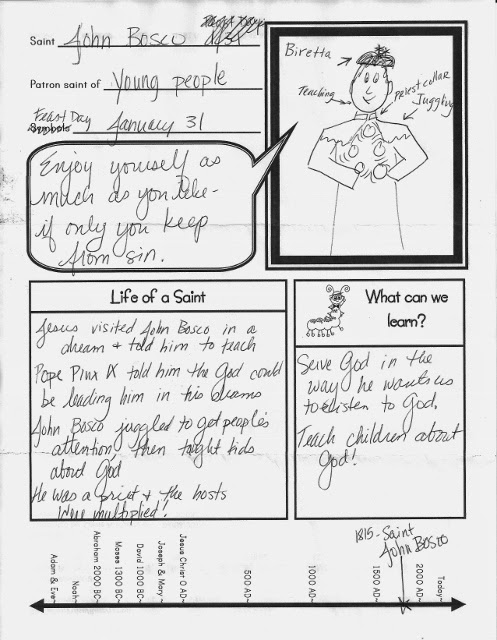 Saint John Bosco
Patron saint of Young people
Feast Day
Symbols January 31
Biretta
Teaching
priest collar
Juggling
Enjoy yourself as
much as you like -
if only you keep
from sin.
Life of a Saint
Jesus visited John Bosco in a
dream & told him to teach
Pope Pius IX told him the God could
be leading him in his dreams
John Bosco juggled to get people's
attention then taught kids
about God
He was a priest & the hosts
were multiplied!
What can we
learn?
Serve God in the
way he wants us
to & listen to God.
Teach children about
God!
1815 - Saint
John Bosco
Adam & Eve~
Noah~
Abraham 2000 BC~
Moses 1300 BC~
David 1000 BC~
Joseph & Mary~
Jesus Christ 0 AD~
500 AD~
1000 AD~
1500 AD~
2000 AD~
Today~